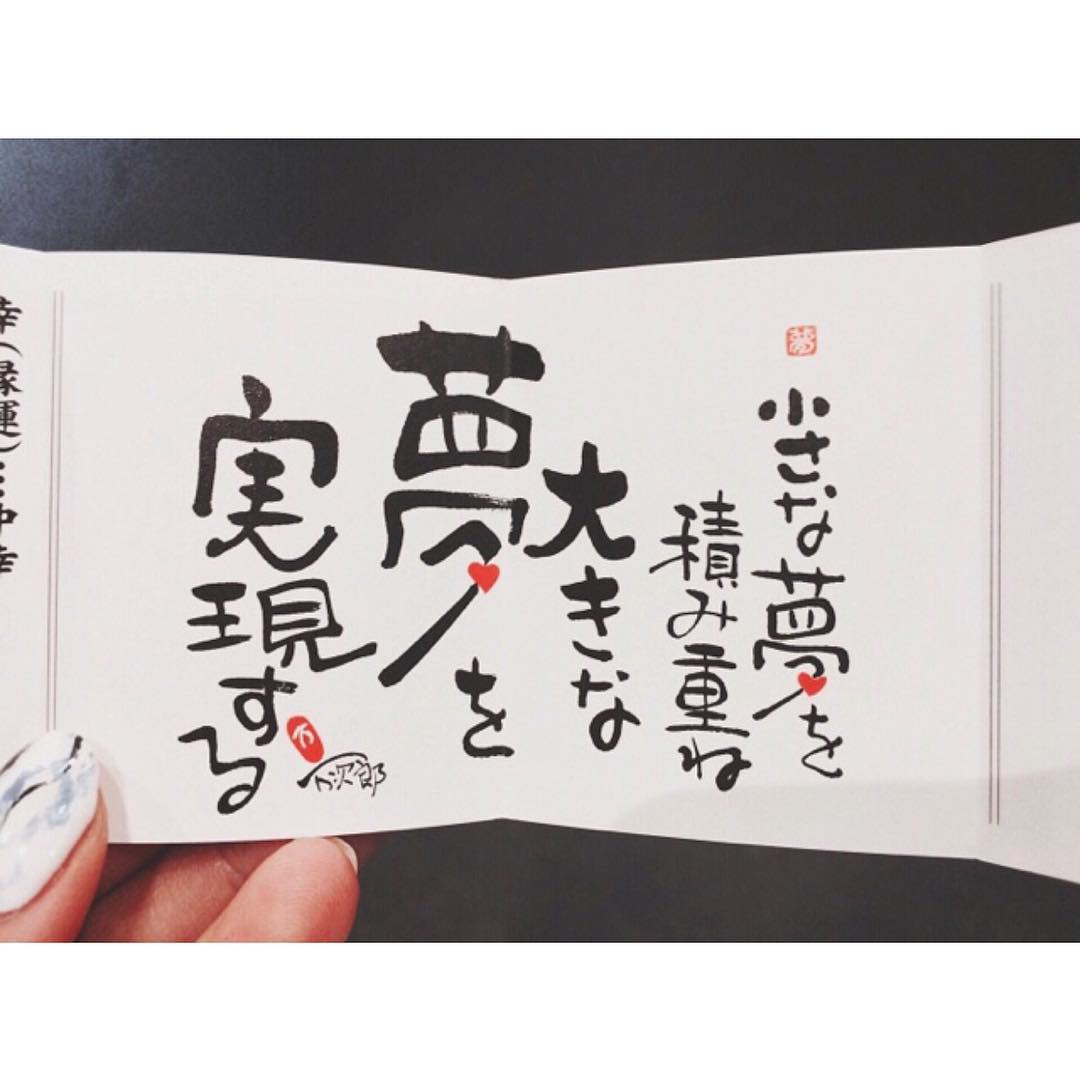 夢
小さな夢を
積み重ね
大きな
夢を
実現する
万
万次郎
幸(縁運)…中幸